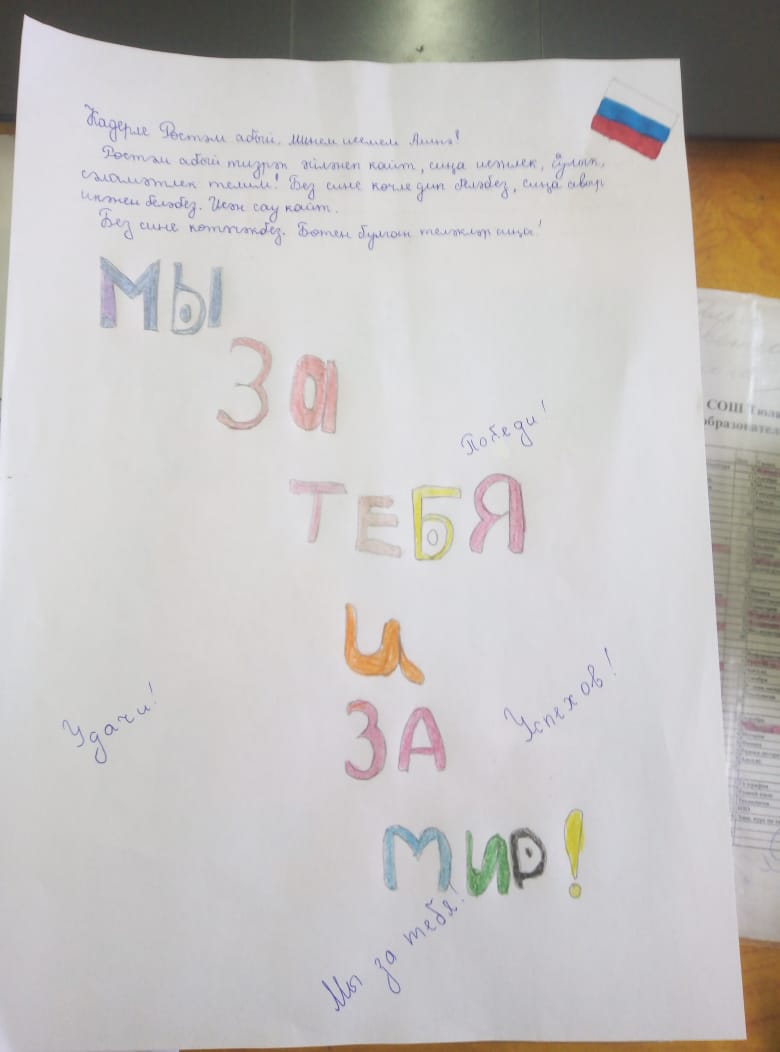 Кадерле Рөстәм абый, минем исемем Алинә!
Рөстәм абый тизрәк әйләнеп кайт, сиңа исәнлек,
сәламәтлек телим! Без сине көчле дип беләбез, сиңа авыр
икәнен беләбез. Исән сау кайт.
Без сине көтәчәкбез. Бөтен булган теләкләр сиңа!
МЫ
За
Победи!
ТЕБЯ
и
Удачи!
Успехов!
ЗА
МИР!
Мы за тебя!
СОШ
образовател